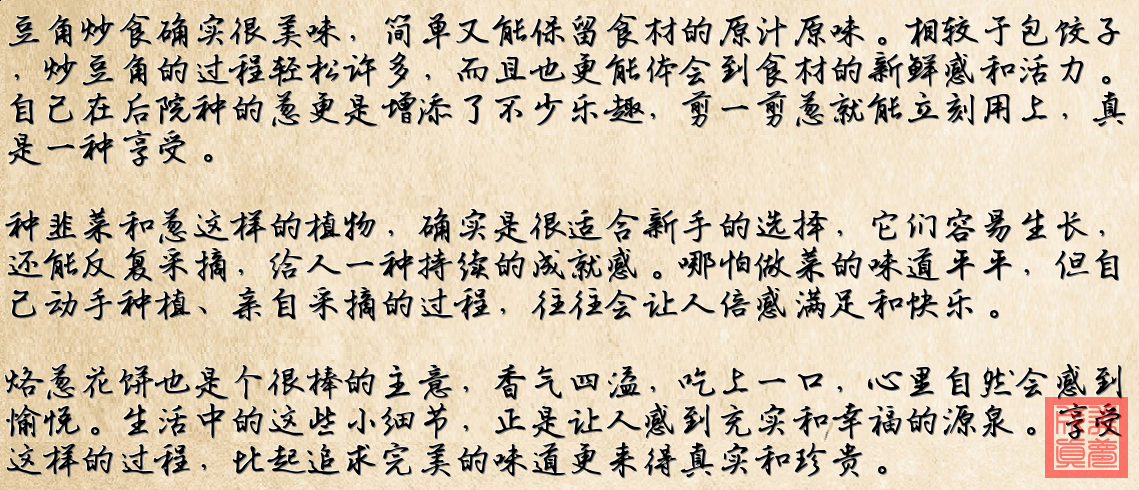 豆角炒食确实很美味，简单又能保留食材的原汁原味。相较于包饺子
，炒豆角的过程轻松许多，而且也更能体会到食材的新鲜感和活力。
自己在后院种的葱更是增添了不少乐趣，剪一剪葱就能立刻用上，真
是一种享受。
种韭菜和葱这样的植物，确实是很适合新手的选择，它们容易生长，
还能反复采摘，给人一种持续的成就感。哪怕做菜的味道平平，但自
己动手种植、亲自采摘的过程，往往会让人倍感满足和快乐。
烙葱花饼也是个很棒的主意，香气四溢，吃上一口，心里自然会感到
愉悦。生活中的这些小细节，正是让人感到充实和幸福的源泉。享受
这样的过程，比起追求完美的味道更来得真实和珍贵。